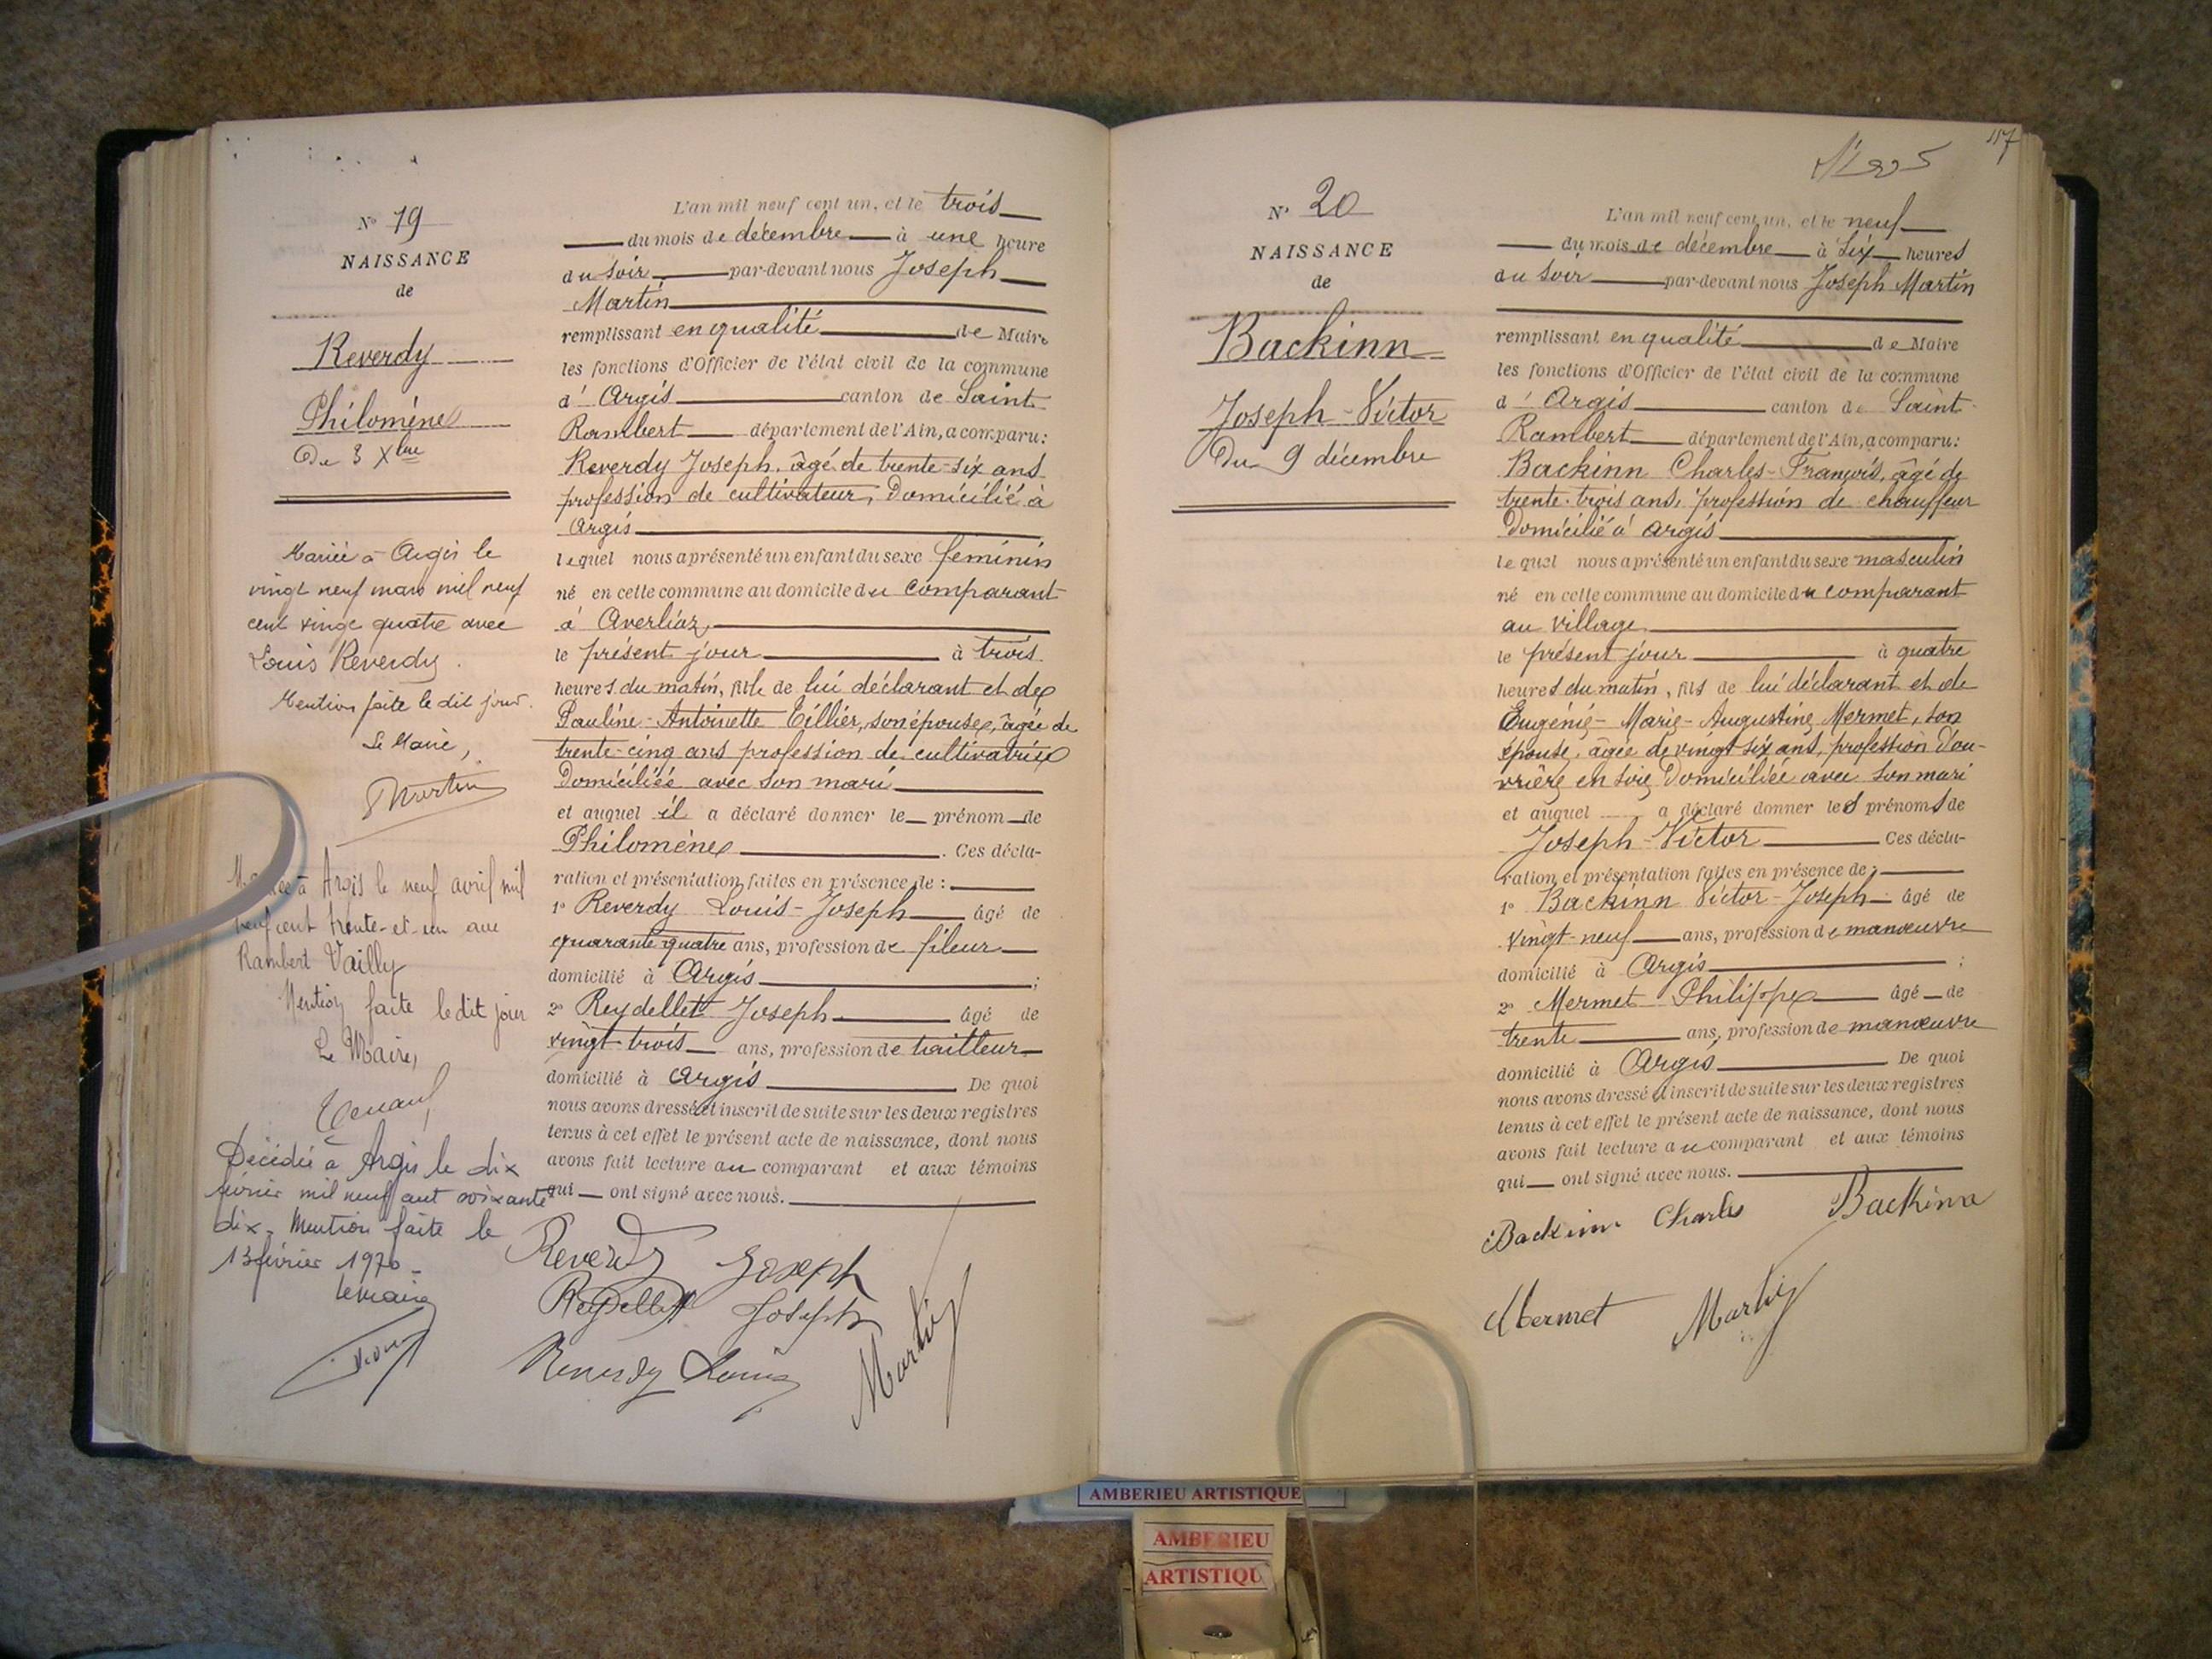 N° 19
NAISSANCE
de
Reverdy
Philomène
Du 3 Xbre
Mariée à Argis le
vingt neuf mars mil neuf
cent vingt quatre avec
Louis Reverdy.
Mention faite le dit jour.
Le Maire,
Martin
Mariée à Argis le neuf avril mil
neuf cent trente-et-un avec
Rambert Vailly
Mention faite le dit jour
Le Maire,
Décédée à Argis le dix
février mil neuf cent soixante
dix. Mention faite le
13 février 1970.
Le maire
L'an mil neuf cent un, et le trois
du mois de décembre à une heure
du soir par-devant nous Joseph
Martin
remplissant en qualité de Maire
les fonctions d'Officier de l'état civil de la commune
d' Argis canton de Saint
Rambert département de l'Ain, a comparu:
Reverdy Joseph, âgé de trente-six ans
profession de cultivateur, domicilié à
Argis
lequel nous a présenté un enfant du sexe féminin
né en cette commune au domicile du comparant
à Averliaz,
le présent jour à trois
heures du matin, fille de lui déclarant et de
Pauline-Antoinette Tillier, son épouse, âgée de
trente-cinq ans profession de cultivatrice
domiciliée avec son mari
et auquel il a déclaré donner le prénom de
Philomène. Ces décla-
ration et présentation faites en présence de :
1° Reverdy Louis-Joseph âgé de
quarante-quatre ans, profession de fileur
domicilié à Argis ;
2° Reydellet Joseph âgé de
vingt-trois ans, profession de tailleur
domicilié à Argis De quoi
nous avons dressé et inscrit de suite sur les deux registres
tenus à cet effet le présent acte de naissance, dont nous
avons fait lecture au comparant et aux témoins
qui ont signé avec nous.
Reverdy Joseph
Reydellet Joseph
Reverdy Louis
Martin
117
N° 20
NAISSANCE
de
Backinn
Joseph-Victor
Du 9 décembre
L'an mil neuf cent un, et le neuf
du mois de décembre à six heures
du soir par-devant nous Joseph Martin
remplissant en qualité de Maire
les fonctions d'Officier de l'état civil de la commune
d' Argis canton de Saint
Rambert département de l'Ain, a comparu:
Backinn Charles-François, âgé de
trente-trois ans, profession de chauffeur
domicilié à Argis
lequel nous a présenté un enfant du sexe masculin
né en cette commune au domicile du comparant
au village,
le présent jour à quatre
heures du matin, fils de lui déclarant et de
Eugénie-Marie-Augustine Mermet, son
épouse, âgée de vingt six ans, profession d'ou-
vrière en soie domiciliée avec son mari
et auquel a déclaré donner les prénoms de
Joseph-Victor Ces décla-
ration et présentation faites en présence de :
1° Backinn Victor-Joseph âgé de
vingt-neuf ans, profession de manœuvre
domicilié à Argis ;
2° Mermet Philippe âgé de
trente ans, profession de manœuvre
domicilié à Argis De quoi
nous avons dressé et inscrit de suite sur les deux registres
tenus à cet effet le présent acte de naissance, dont nous
avons fait lecture au comparant et aux témoins
qui ont signé avec nous.
Backinn Charles Backinn
Mermet Martin
AMBERIEU ARTISTIQUE
AMBERIEU
ARTISTIQU